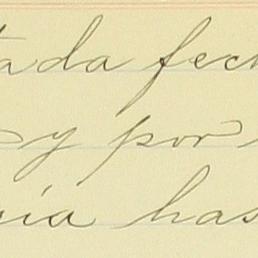 tada fech
y por
cia has